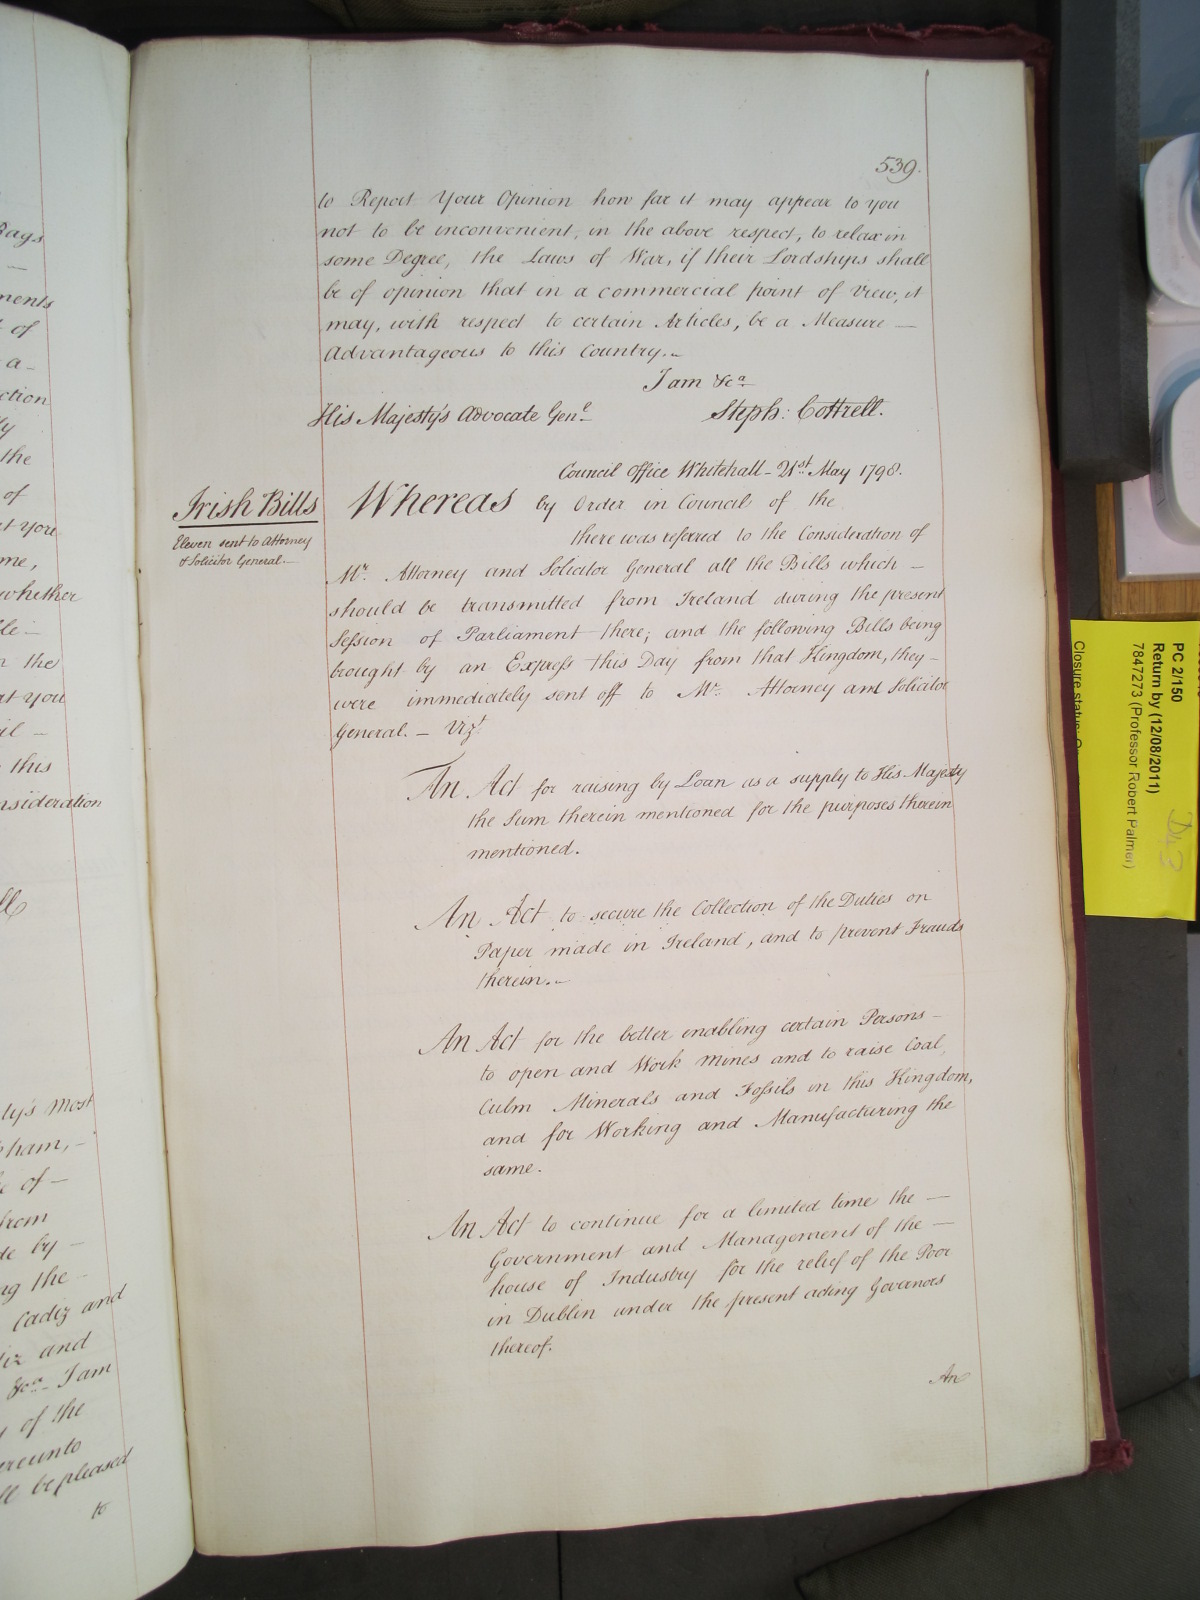 539.
to Report Your Opinion how far it may appear to you
not to be inconvenient, in the above respect, to relax in
some Degree, the Laws of War, if their Lordships shall
be of opinion that in a commercial point of View, it
may, with respect to certain Articles, be a Measure —
Advantageous to this Country. –
I am &ca
His Majesty's Advocate Genl
Steph: Cottrell.
Council Office Whitehall – 21st May 1798.
Irish Bills
Eleven sent to Attorney
& Solicitor General. –
Whereas by Order in Council of the
there was referred to the Consideration of
Mr. Attorney and Solicitor General all the Bills which –
should be transmitted from Ireland during the present
Session of Parliament there; and the following Bills being
brought by an Express this Day from that Kingdom, they –
were immediately sent off to Mr. Attorney and Solicitor
General. – Vizt
An Act for raising by Loan as a supply to His Majesty
the Sum therein mentioned for the purposes therein
mentioned.
An Act to secure the Collection of the Duties on
Paper made in Ireland, and to prevent Frauds
therein. –
An Act for the better enabling certain Persons –
to open and Work Mines and to raise Coal,
Culm Minerals and Fossils in this Kingdom,
and for Working and Manufacturing the
same.
An Act to continue for a limited time the —
Government and Management of the —
house of Industry for the relief of the Poor
in Dublin under the present acting Governors
thereof.
An
Bags
of
a –
the
of
at you
me,
whether
the
at you
this
nsideration
ty's Most
of –
from
by –
the –
Cadiz and
and
&ca I am
of the
be pleased
to
PC 2/150
Return by (12/08/2011)
7847273 (Professor Robert Palmer)
Closure status: